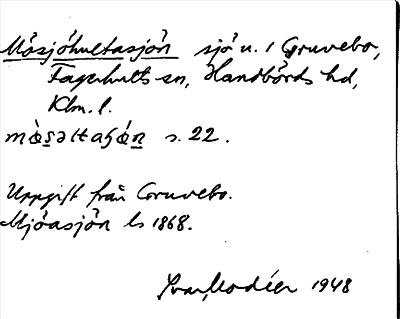 Mösjöhultasjön sjö u. 1 Gruvebo,
Fagerhults sn, Handbörds hd,
Klm. l.
s. 22.
Uppgift från Gruvebo.
Mjöasjön ls 1868.
Ivar Modéer 1948